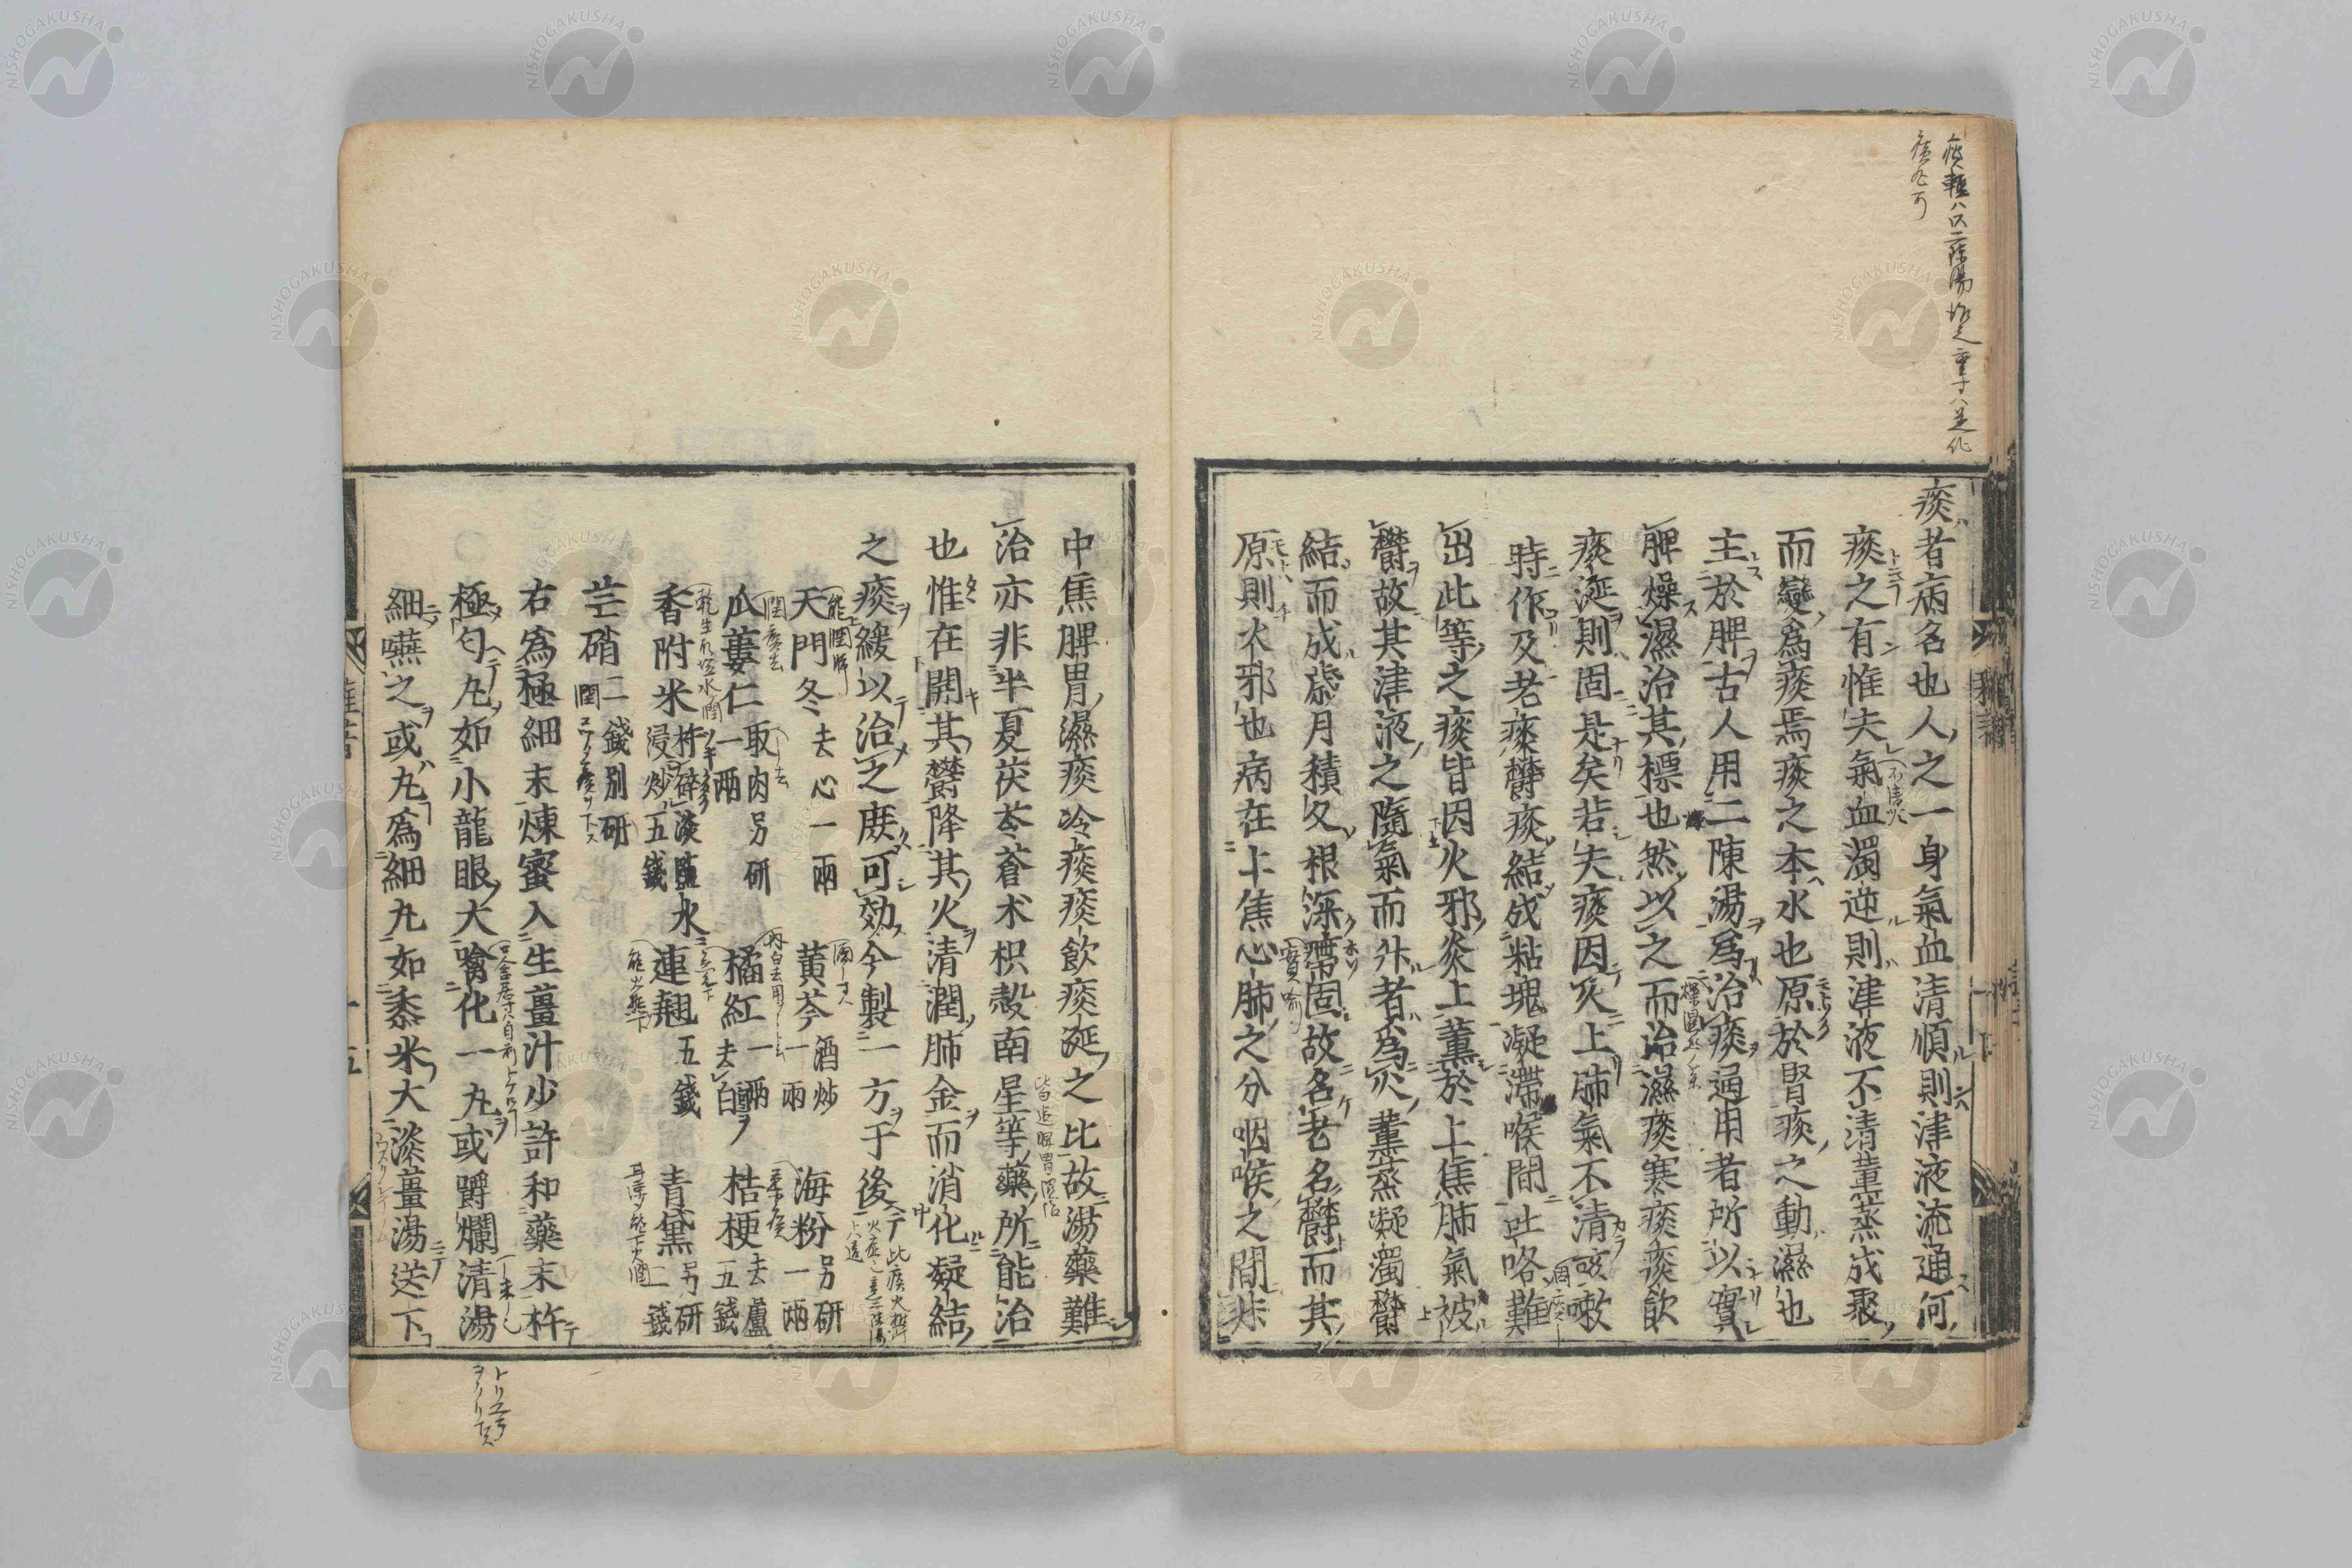 痰者病名也人之一身氣血清順則津液流通何
痰之有惟夫氣血濁逆則津液不清薫蒸成聚
而變爲痰焉痰之本水也原於腎痰之動濕也
主於脾古人用二陳湯爲治痰通用者所以實
脾燥濕治其標也然以之而治濕痰寒痰痰飲
痰涎則固是矣若夫痰因火上肺氣不清咳嗽
時作及老痰欝痰結成粘塊凝滯喉間吐咯難
出此等之痰皆因火邪炎上薫於上焦肺氣被
欝故其津液之隨氣而升者爲火薫蒸凝濁欝
結而成歳月積久根深蔕固故名老名欝而其
原則火邪也病在上焦心肺之分咽喉之間非
中焦脾胃濕痰冷痰痰飲痰涎之比故湯藥難
治亦非半夏茯苓蒼朮枳殻南星等藥所能治
也惟在開其欝降其火清潤肺金而消化凝結
之痰緩以治之庶可効今製一方于後
天門冬去心一兩 黄芩酒炒一兩 海粉另研一兩
瓜蔞仁取肉另研一兩 橘紅去白一兩 桔梗去蘆五錢
香附米杵碎淡鹽水浸炒五錢 連翹五錢 青黛另研二錢
芒硝二錢別研
右爲極細末煉蜜入生薑汁少許和藥末杵
極勻丸如小龍眼大噙化一丸或嚼爛清湯
細嚥之或丸爲細丸如黍米大淡薑湯送下
NISHOGAKUSHA